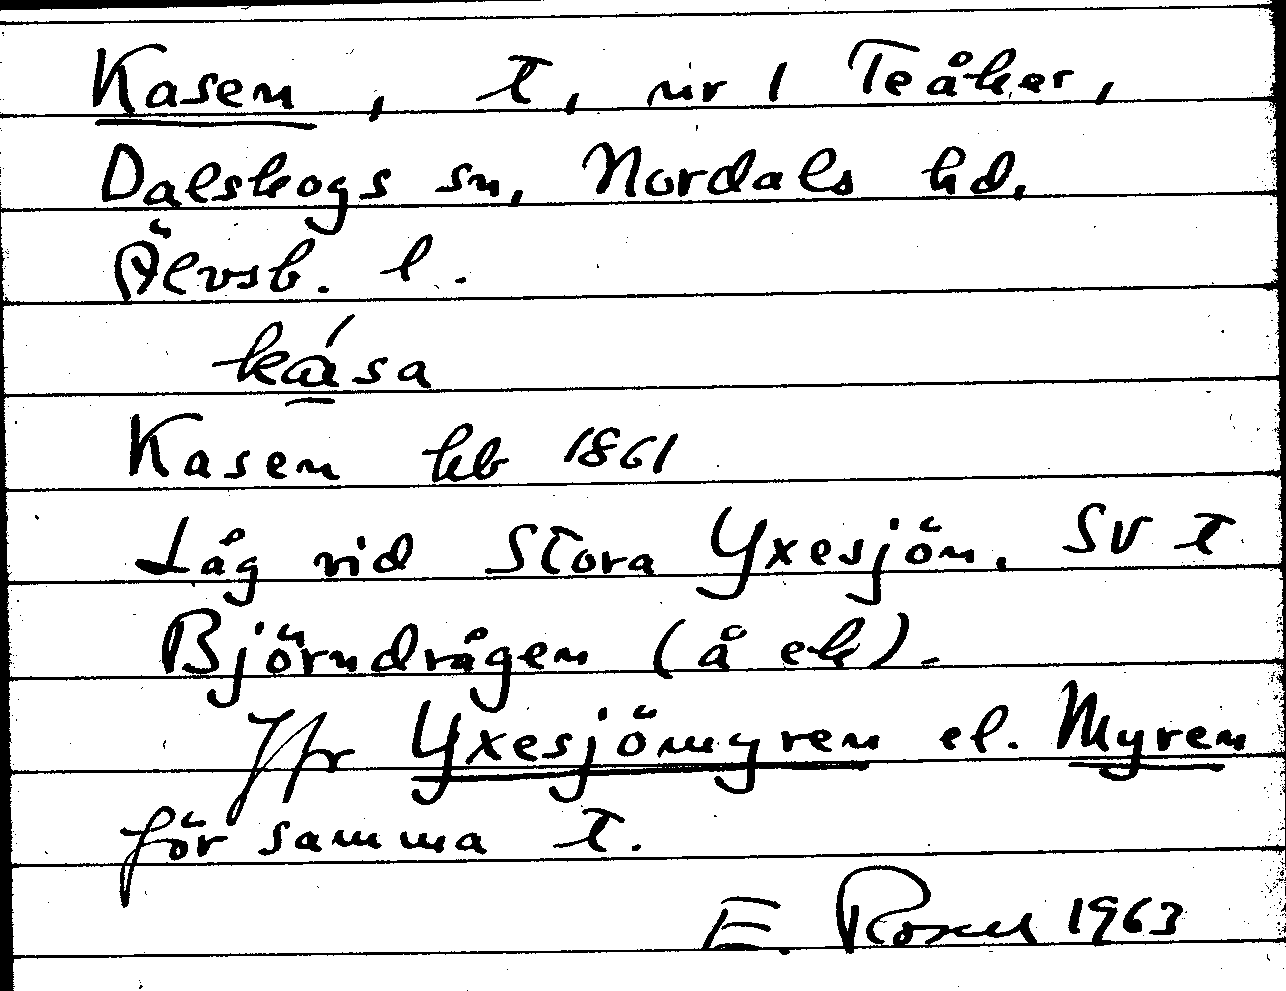 Kasen, t, nr 1 Teåker,
Dalskogs sn, Nordals hd,
Älvsb. l.
ká̲sa
Kasen hb 1861
Låg vid Stora Yxesjön. SV t
Björndrågen (å ek).
Jfr Yxesjömyren el. Myren
för samma t.
E. Rosell 1963